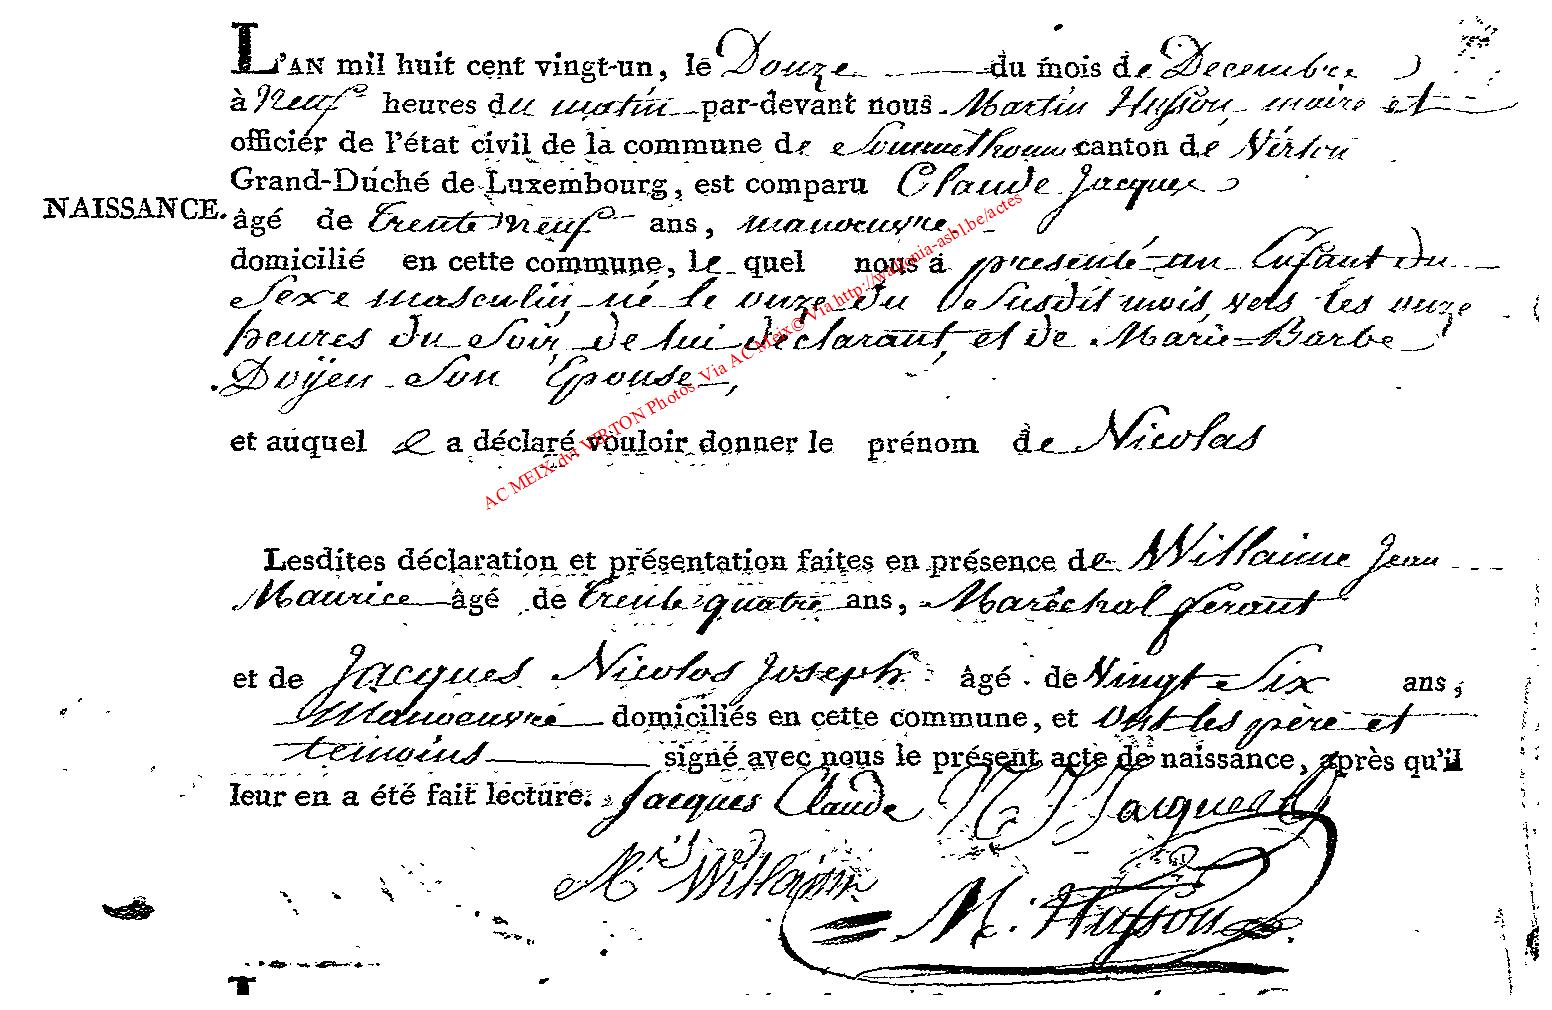 L'AN mil huit cent vingt-un, le Douze du mois de Decembre
à Neuf heures du matin par-devant nous Martin Husson, maire et
officier de l'état civil de la commune de Sommethonne canton de Virton
Grand-Duché de Luxembourg, est comparu Claude Jacques
NAISSANCE.
âgé de trente neuf ans, manoeuvre
domicilié en cette commune, le quel nous a presenté un Enfant du
Sexe masculin, né le onze du Susdit mois, vers les onze
heures du Soir, de lui déclarant, et de Marie-Barbe
Doyen Son Epouse,
et auquel il a déclaré vouloir donner le prénom de Nicolas
Lesdites déclaration et présentation faites en présence de Willaime Jean
Maurice âgé de trente quatre ans, Maréchal ferant
et de Jacques Nicolas Joseph âgé de Vingt Six ans,
Manoeuvre domiciliés en cette commune, et ont les père et
temoins signé avec nous le présent acte de naissance, après qu'il
leur en a été fait lecture. Jacques Claude N J Jacques
Mce Willaime
M. Husson
AC MEIX-dvt VIRTON Photos. Via AC Meix@ Via http://wallonia-asbl.be/actes